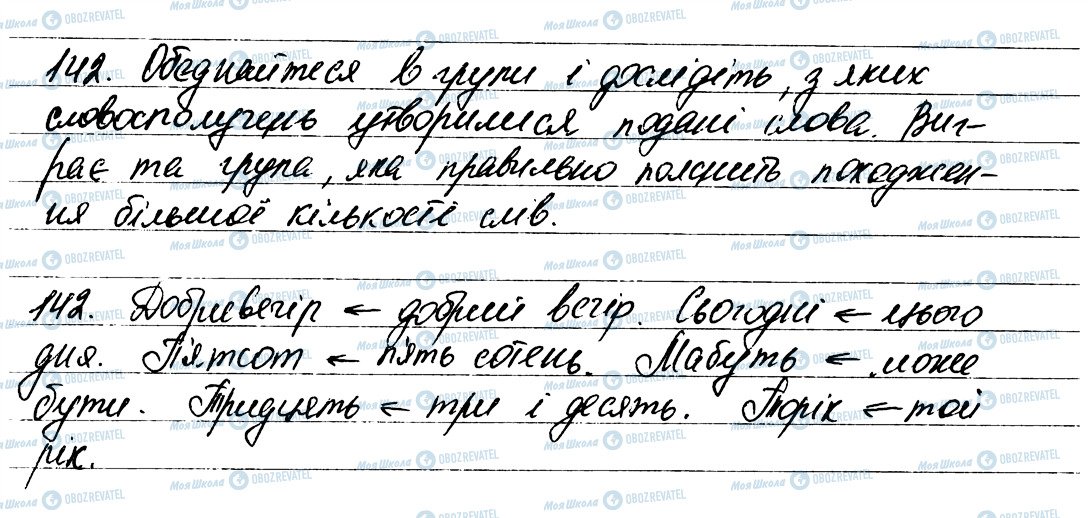 142. Обєднайтеся в групи і дослідіть, з яких
словосполучень утворилися подані слова. Виг-
рає та група, яка правильно пояснить походжен-
ня більшої кількості слів.
142. Добривечір ← добрий вечір. Сьогодні ← цього
дня. П'ятсот ← п'ять сотень. Мабуть ← може
бути. Тридцять ← три і десять. Торік ← той
рік.